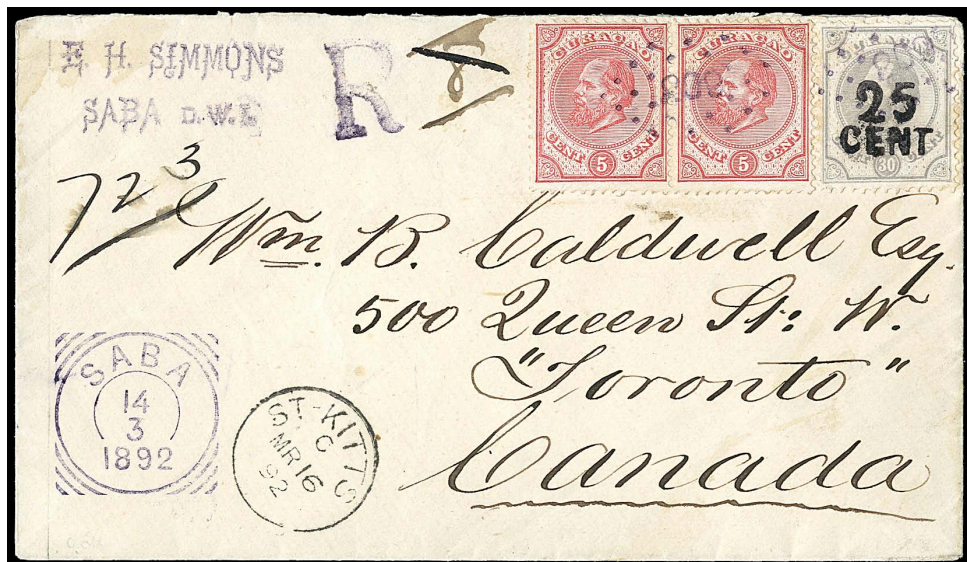 E. H. SIMMONS
SABA D.W.I.
R
CURAÇAO
CENT 5 CENT
CURAÇAO
CENT 5 CENT
25
CENT
30
723
Wm. B. Caldwell Esq.
500 Queen St: W.
"Toronto"
Canada
SABA
14
3
1892
ST-KITTS
C
MR 16
92